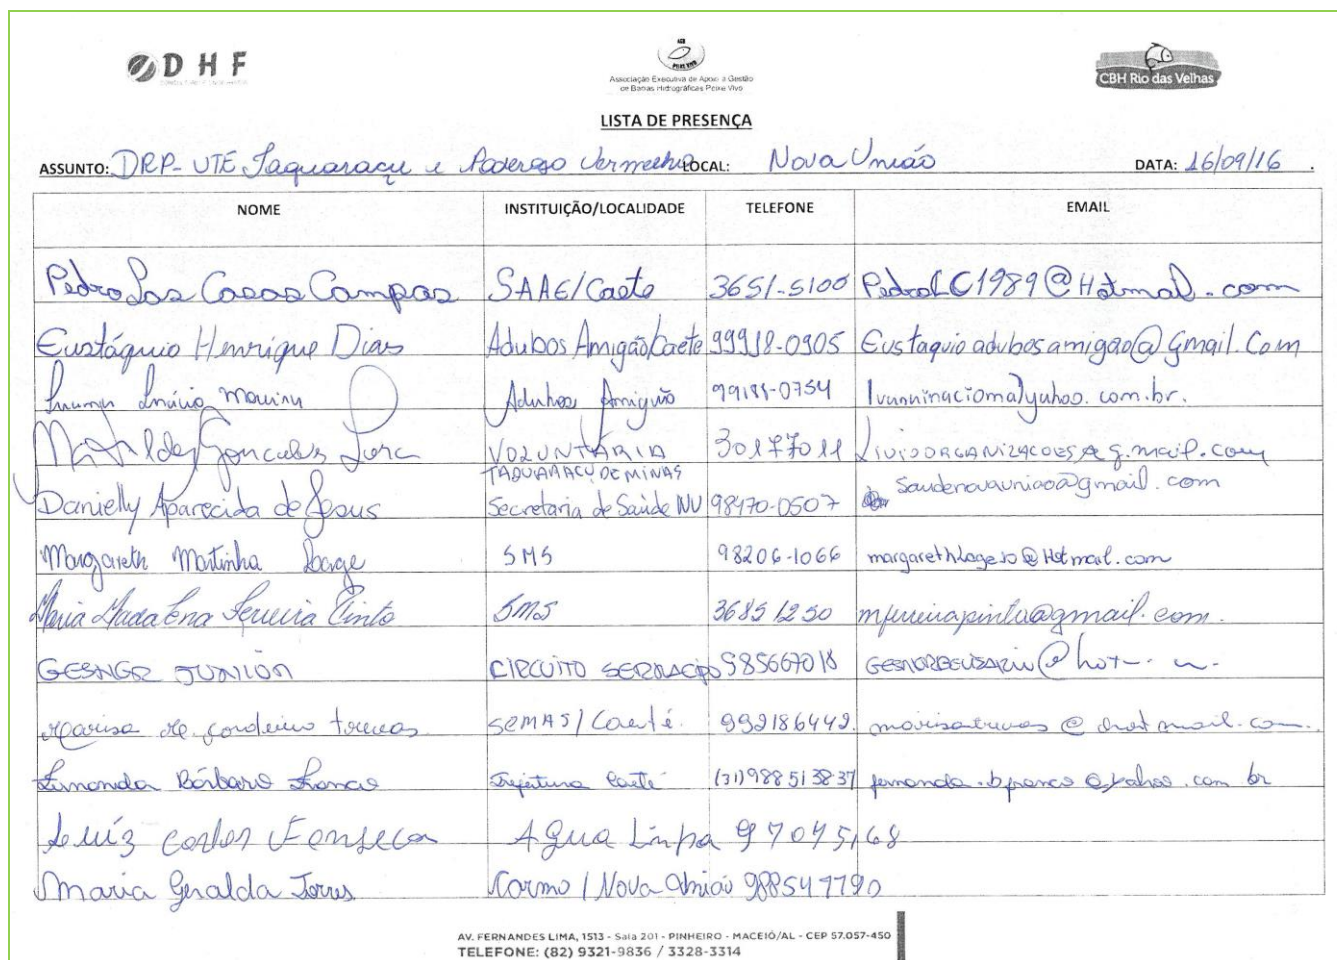 DHF
Associação Executiva de Apoio à Gestão
de Bacias Hidrográficas Peixe Vivo
CBH Rio das Velhas
LISTA DE PRESENÇA
ASSUNTO: DRP- UTE Taquaraçu e Poderoso Vermelho LOCAL: Nova União DATA: 16/09/16
NOME INSTITUIÇÃO/LOCALIDADE TELEFONE EMAIL
Pedro Las Casas Campos SAAE/Caete 3651-5100 PedroLC1989@Hotmail.com
Eustáquio Henrique Dias Adubos Amigão/Caete 99918-0905 Eustaquioadubosamigao@gmail.Com
Inácio Moreira Adubos Amigão 99181-0754
Matildes Gonçalves VOLUNTÁRIA 30177011
TAQUARAÇU DE MINAS
Danielly Aparecida de Jesus Secretaria de Saúde NU 98470-0507 Saudenovauniao@gmail.com
Margareth Martinha Lage SMS 98206-1066
Maria Madalena Ferreira Pinto SMS 36851250 mfereirapinto@gmail.com.
GESNER JUNIOR CIRCUITO 985667018
Marisa de Cordeiro SEMAS/Caeté. 992186442.
Fernanda Bárbara Franco Prefeitura Caeté (31)988513837 fernanda.bfranco@yahoo.com br
Luíz Carlos Fonseca Agua Linpa 97045168
Maria Geralda Torres Carmo / Nova União 988549790
AV. FERNANDES LIMA, 1513 - Sala 201 - PINHEIRO - MACEIÓ/AL - CEP 57.057-450
TELEFONE: (82) 9321-9836 / 3328-3314